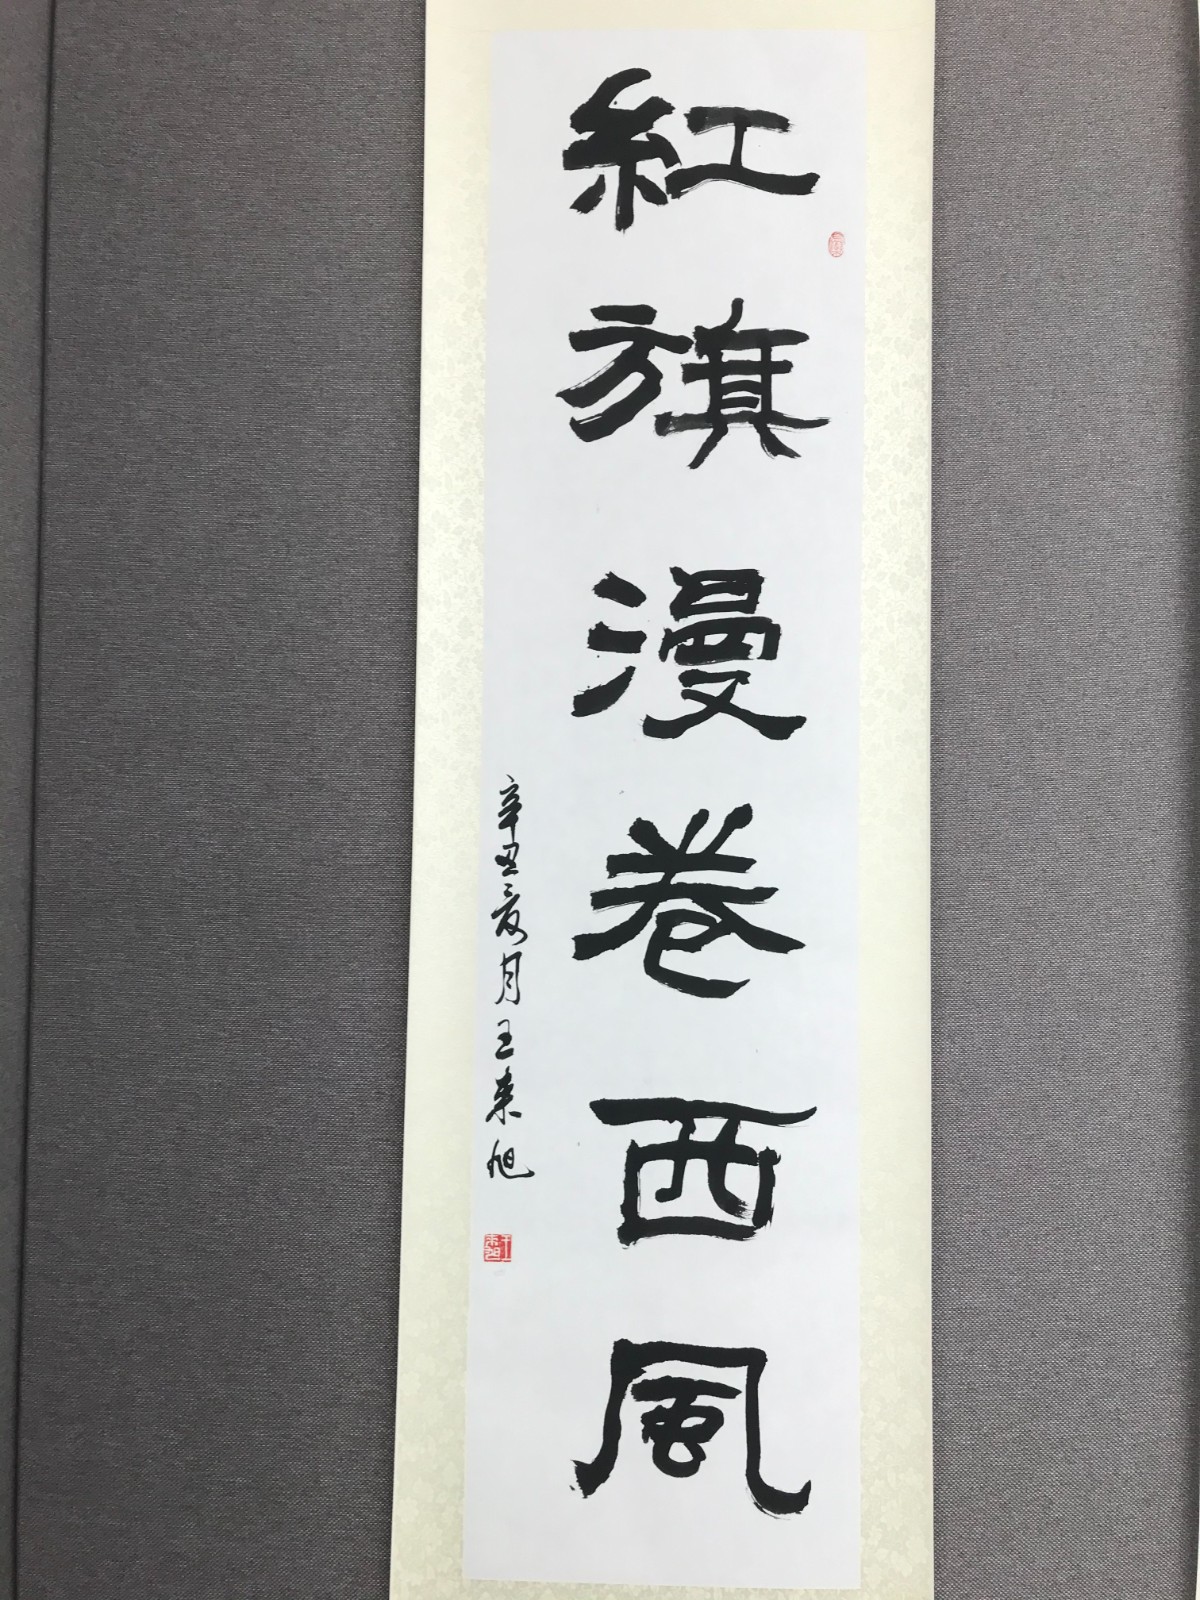 紅旗漫卷西風
辛丑夏月王来旭